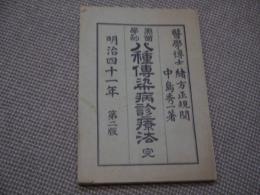 醫學博士 緒方正規閲
中島秀一著
黒苗
學名
八種傳染病診療法 完
明治四十一年 第二版